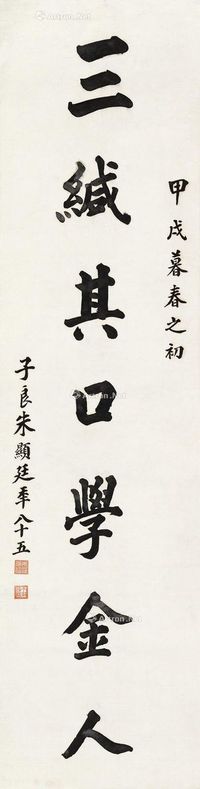 甲戌暮春之初
三緘其口學金人
子良朱顯廷年八十五